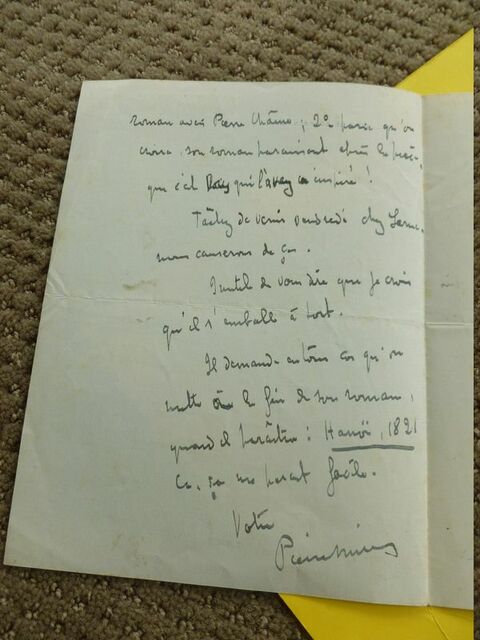 roman avec Pierre ; 2° parce qu'on
croira, son roman paraissant
que c'est qui l' inspiré !
Tâchez de venir vendredi chez
nous causerons de ça.
Inutile de vous dire que je crois
qu'il s'emballe à tort.
Il demande en tous cas qu'on
mette à la fin de son roman,
quand il paraîtra : Hanoï, 1921
Ca, ça me paraît facile.
Votre
Pierre Mille